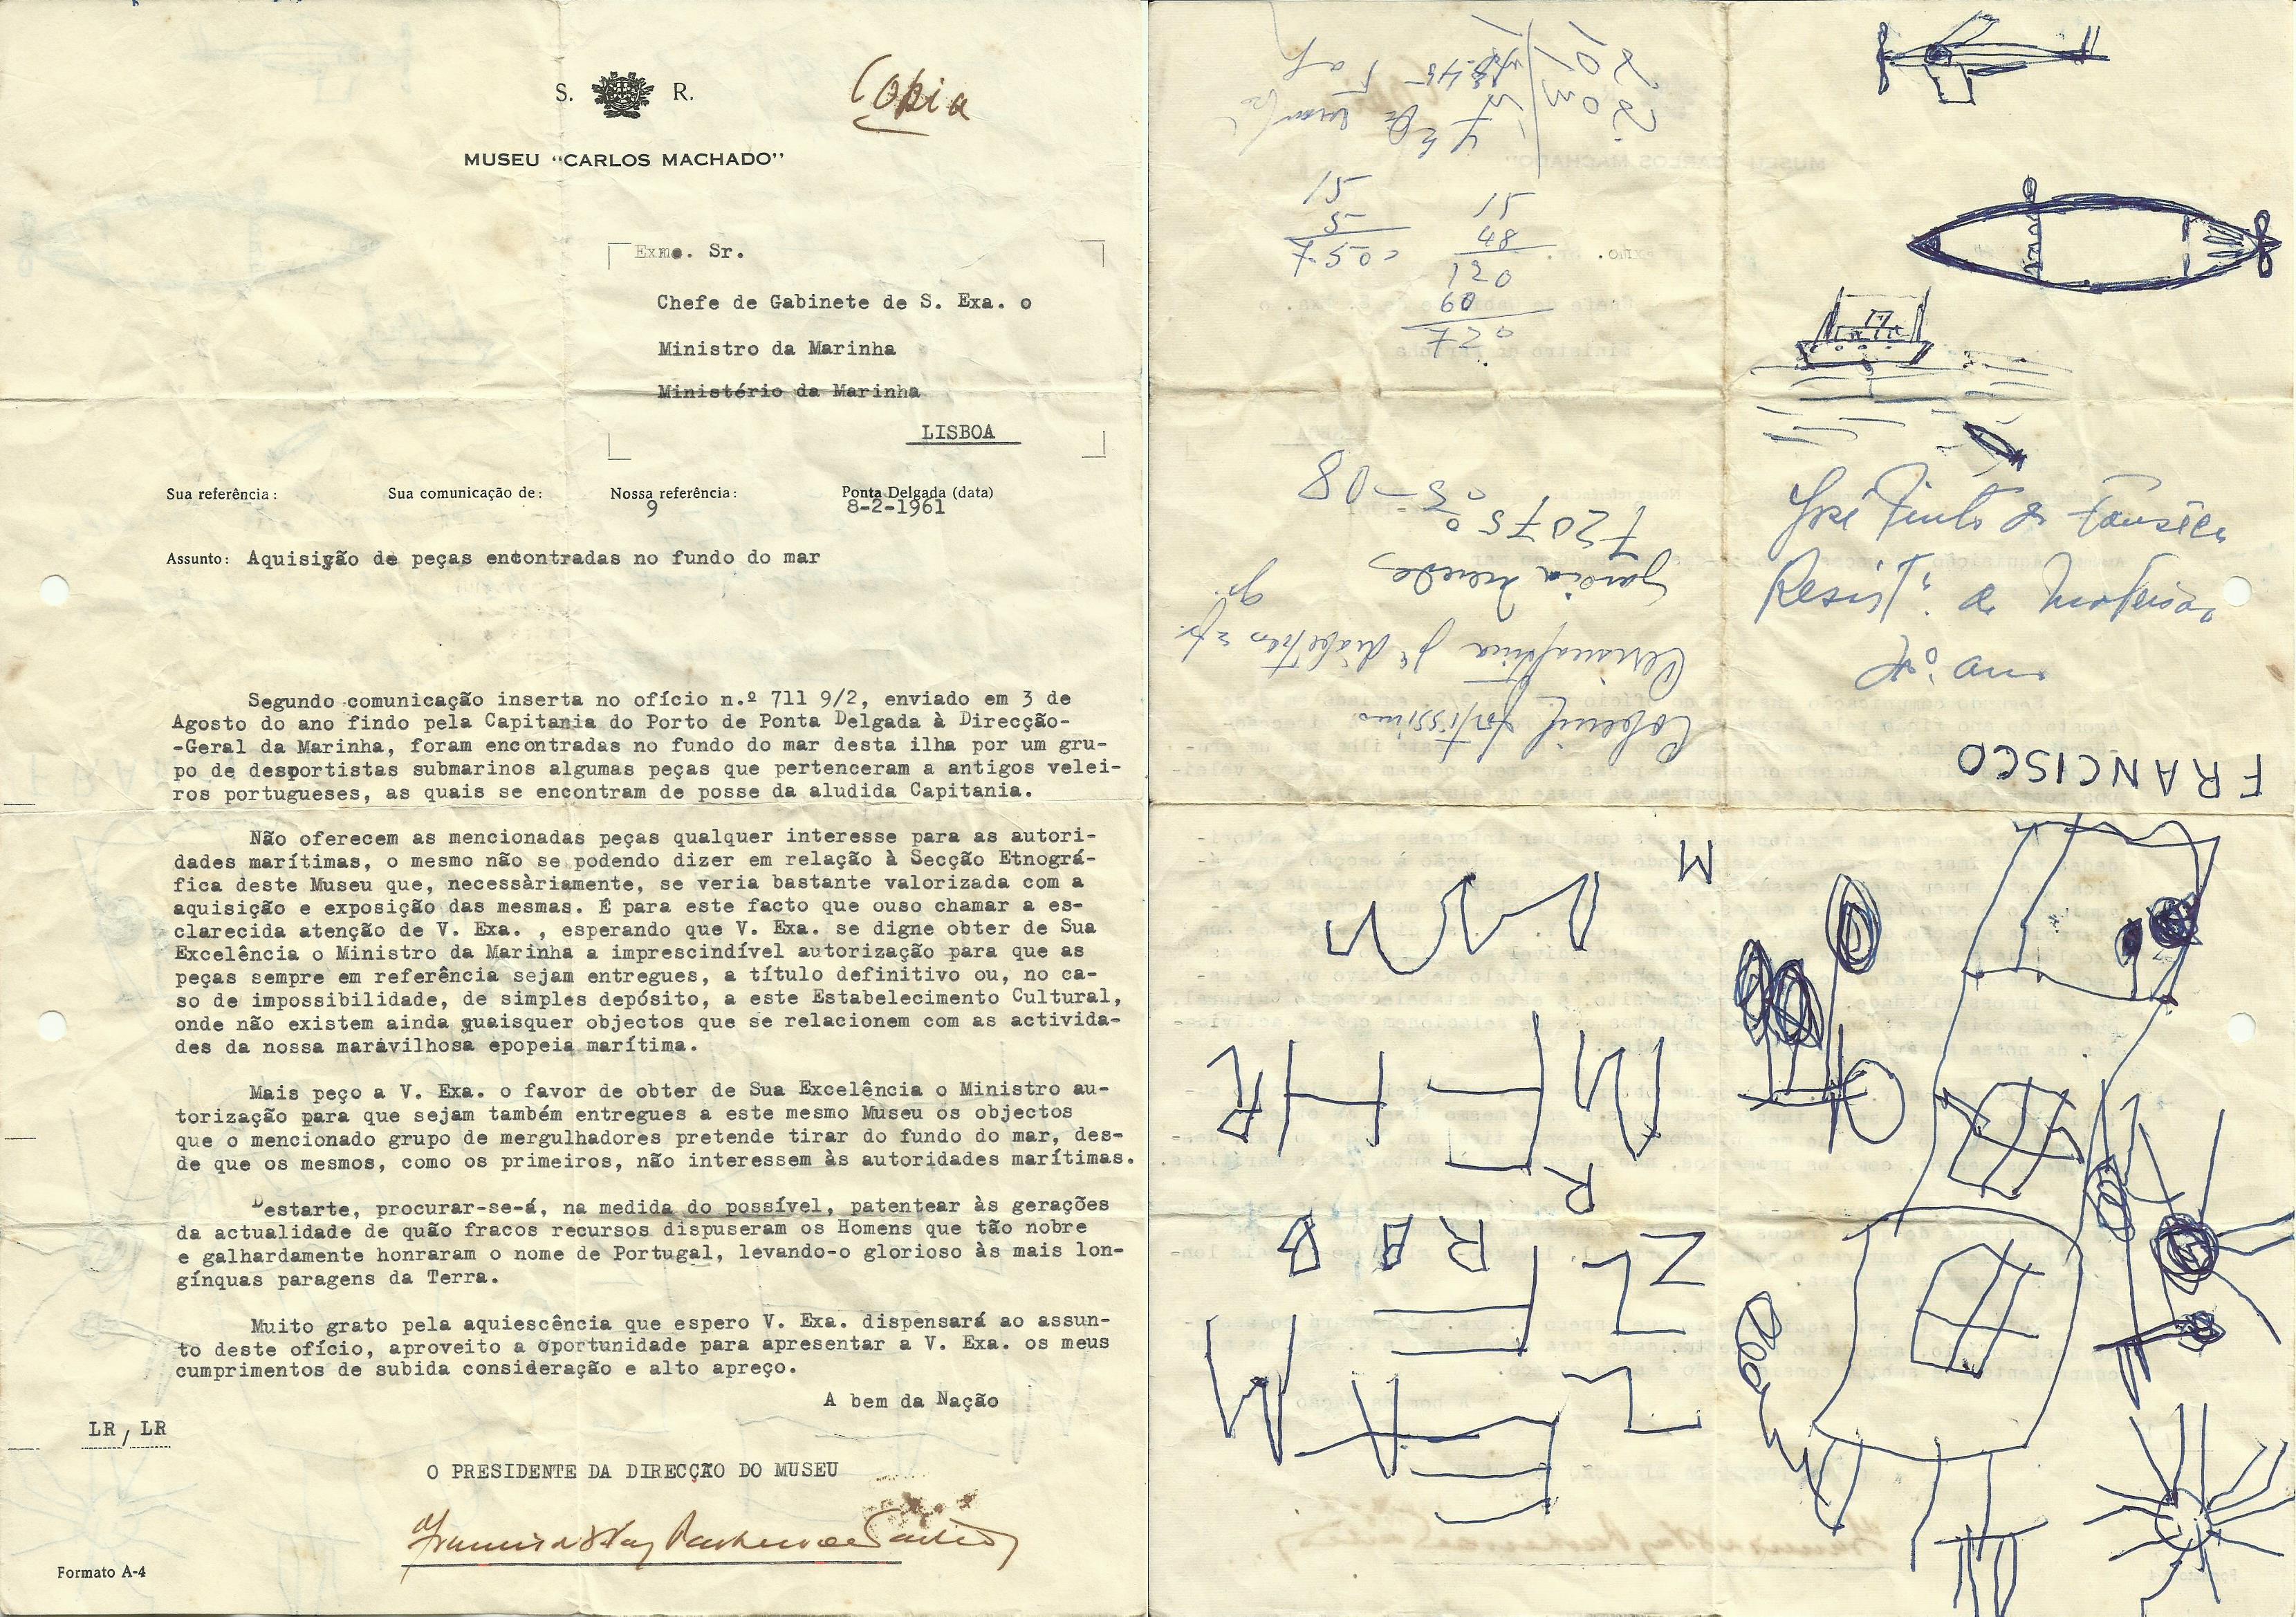 S. R.
Copia
MUSEU "CARLOS MACHADO"
Exmo. Sr.
Chefe de Gabinete de S. Exa. o
Ministro da Marinha
Ministério da Marinha
LISBOA
Sua referência: Sua comunicação de: Nossa referência: Ponta Delgada (data)
9 8-2-1961
Assunto: Aquisição de peças encontradas no fundo do mar
Segundo comunicação inserta no ofício n.º 711 9/2, enviado em 3 de
Agosto do ano findo pela Capitania do Porto de Ponta Delgada à Direcção-
-Geral da Marinha, foram encontradas no fundo do mar desta ilha por um gru-
po de desportistas submarinos algumas peças que pertenceram a antigos velei-
ros portugueses, as quais se encontram de posse da aludida Capitania.
Não oferecem as mencionadas peças qualquer interesse para as autori-
dades marítimas, o mesmo não se podendo dizer em relação à Secção Etnográ-
fica deste Museu que, necessàriamente, se veria bastante valorizada com a
aquisição e exposição das mesmas. É para este facto que ouso chamar a es-
clarecida atenção de V. Exa. , esperando que V. Exa. se digne obter de Sua
Excelência o Ministro da Marinha a imprescindível autorização para que as
peças sempre em referência sejam entregues, a título definitivo ou, no ca-
so de impossibilidade, de simples depósito, a este Estabelecimento Cultural,
onde não existem ainda quaisquer objectos que se relacionem com as activida-
des da nossa maravilhosa epopeia marítima.
Mais peço a V. Exa. o favor de obter de Sua Excelência o Ministro au-
torização para que sejam também entregues a este mesmo Museu os objectos
que o mencionado grupo de mergulhadores pretende tirar do fundo do mar, des-
de que os mesmos, como os primeiros, não interessem às autoridades marítimas.
Destarte, procurar-se-á, na medida do possível, patentear às gerações
da actualidade de quão fracos recursos dispuseram os Homens que tão nobre
e galhardamente honraram o nome de Portugal, levando-o glorioso às mais lon-
gínquas paragens da Terra.
Muito grato pela aquiescência que espero V. Exa. dispensará ao assun-
to deste ofício, aproveito a oportunidade para apresentar a V. Exa. os meus
cumprimentos de subida consideração e alto apreço.
A bem da Nação
LR/LR
O PRESIDENTE DA DIRECÇÃO DO MUSEU
Formato A-4
51
48
120
60
720
51
5
José Pinto da Fonseca
4º ano
FRANCISCO
fortissimo
72075
M
R